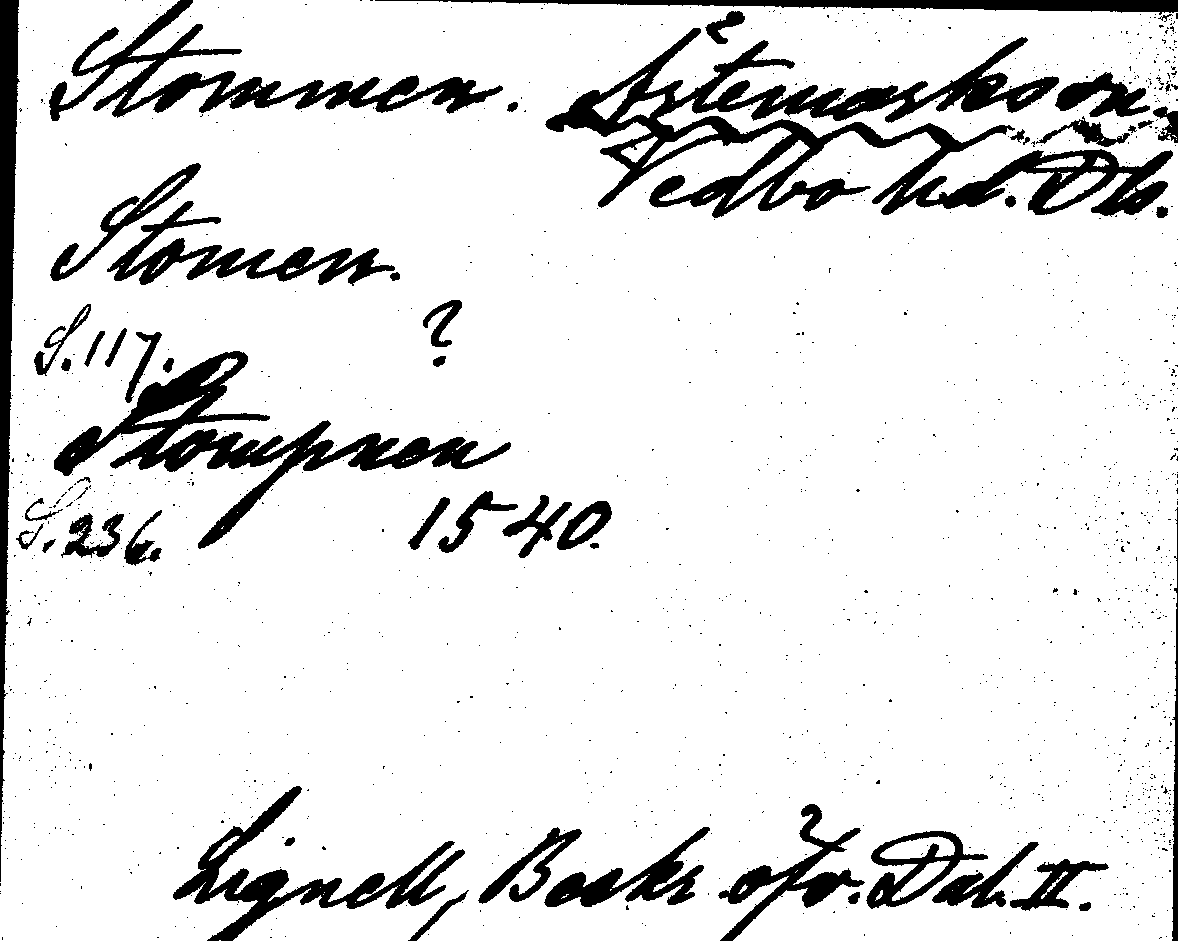 Stommen. Årtemarks sn.
Vedbo hd. Dls.
Stomen.
S. 117. ?
Stompnen
S. 236. 1540.
Lignell, Beskr. öfv. Dal. II.